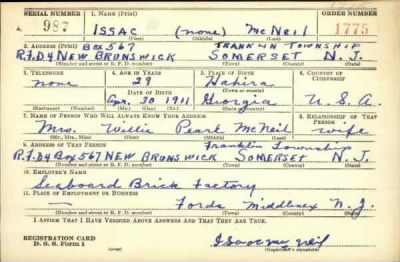 SERIAL NUMBER 1. NAME (Print) ORDER NUMBER
987 ISSAC (none) McNeil 1775
(First) (Middle) (Last)
2. ADDRESS (Print) Box 567 FRANKLIN TOWNSHIP
R.F.D4 NEW BRUNSWICK SOMERSET N.J.
(Number and street or R. F. D. number) (Town) (County) (State)
3. TELEPHONE 4. AGE IN YEARS 5. PLACE OF BIRTH 6. COUNTRY OF CITIZENSHIP
none 29 Hahira
DATE OF BIRTH (Town or county)
Apr. 30 1911 Georgia U.S.A.
(Exchange) (Number) (Mo.) (Day) (Yr.) (State or country)
7. NAME OF PERSON WHO WILL ALWAYS KNOW YOUR ADDRESS 8. RELATIONSHIP OF THAT PERSON
Mrs. Willie Pearl McNeil wife
(Mr., Mrs., Miss) (First) (Middle) (Last)
9. ADDRESS OF THAT PERSON Franklin Township
R.F.D4 Box 567 NEW BRUNSWICK SOMERSET N.J.
(Number and street or R. F. D. number) (Town) (County) (State)
10. EMPLOYER'S NAME
Seaboard Brick Factory
11. PLACE OF EMPLOYMENT OR BUSINESS
— Fords Middlesex N.J.
(Number and street or R. F. D. number) (Town) (County) (State)
I AFFIRM THAT I HAVE VERIFIED ABOVE ANSWERS AND THAT THEY ARE TRUE.
REGISTRATION CARD
D. S. S. Form 1 Isaac Mc Neil